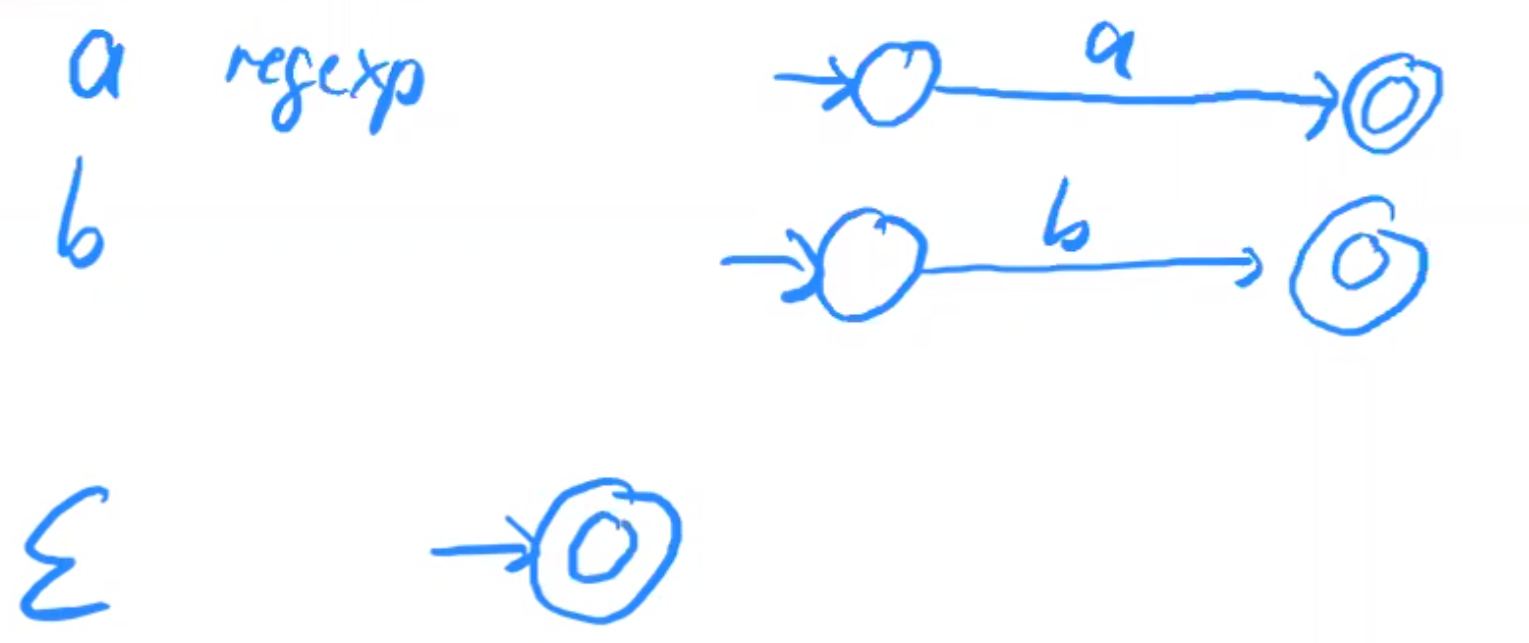 a regexp a
b b
ε